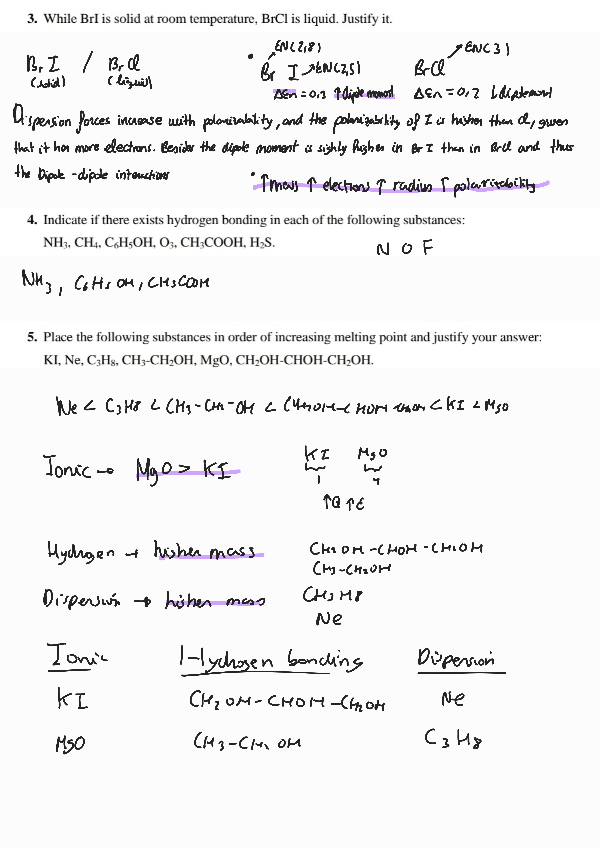 3. While BrI is solid at room temperature, BrCl is liquid. Justify it.
Br I / BrCl
(solid) (liquid)
• EN(2,8)
Br I → EN(2,5)
ΔEn = 0,3 ↑dipole moment
BrCl → EN(3)
ΔEn = 0,2 ↓dipole moment
Dispersion forces increase with polarizability, and the polarizability of I is higher than Cl, given
that it has more electrons. Besides the dipole moment is sighly higher in Br I than in BrCl and thus
the Dipole-dipole interactions
• ↑mass ↑ elections ↑ radius ↑ polarizability
4. Indicate if there exists hydrogen bonding in each of the following substances:
NH₃, CH₄, C₆H₅OH, O₃, CH₃COOH, H₂S.
N O F
NH₃, C₆H₅OH, CH₃COOH
5. Place the following substances in order of increasing melting point and justify your answer:
KI, Ne, C₃H₈, CH₃-CH₂OH, MgO, CH₂OH-CHOH-CH₂OH.
Ne < C₃H₈ < CH₃-CH₂-OH < CH₂OH-CHOH-CH₂OH < KI < MgO
Ionic → MgO > KI
KI MgO
1 4
↑Q ↑E
Hydrogen → higher mass
CH₂OH-CHOH-CH₂OH
CH₃-CH₂OH
Dispersion → higher mass
CH₃H₈
Ne
Ionic Hydrogen bonding Dispersion
KI CH₂OH-CHOH-CH₂OH Ne
MgO CH₃-CH₂OH C₃H₈